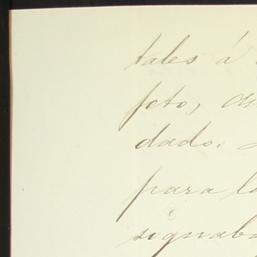 tales á
feto,
dado.
para la
signaba